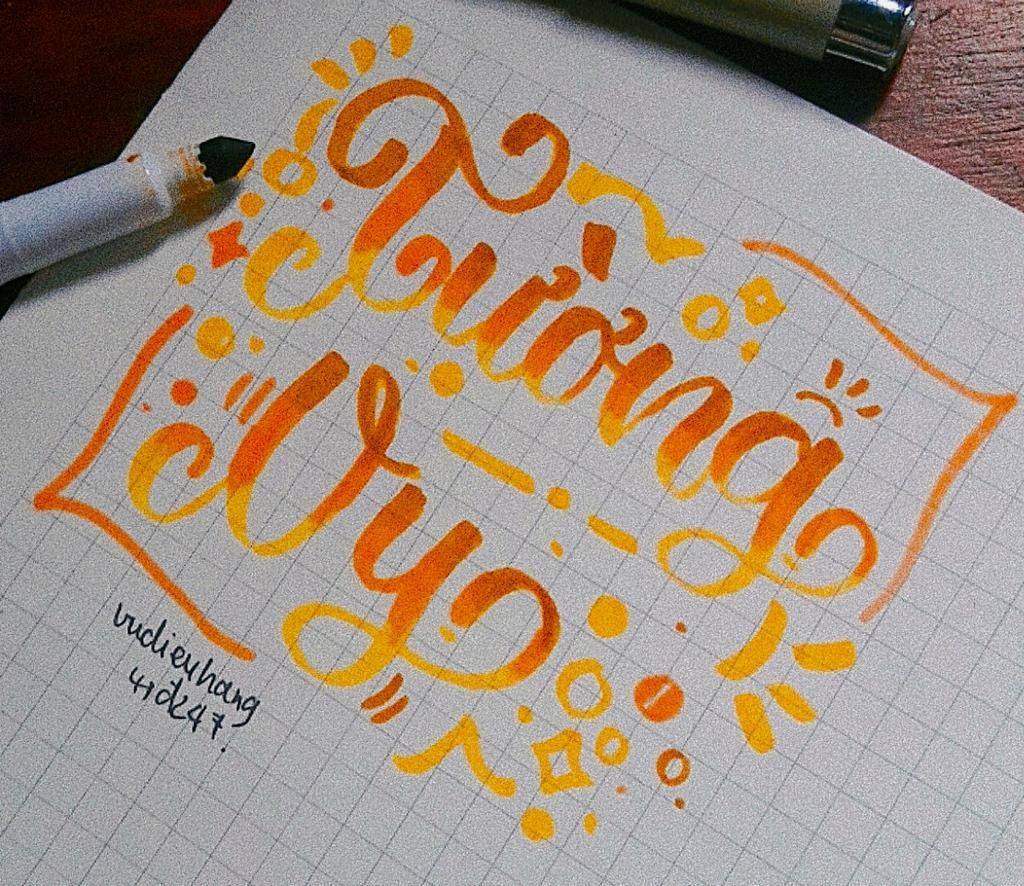 Tường
Vy
vudieuhang
41dk47.